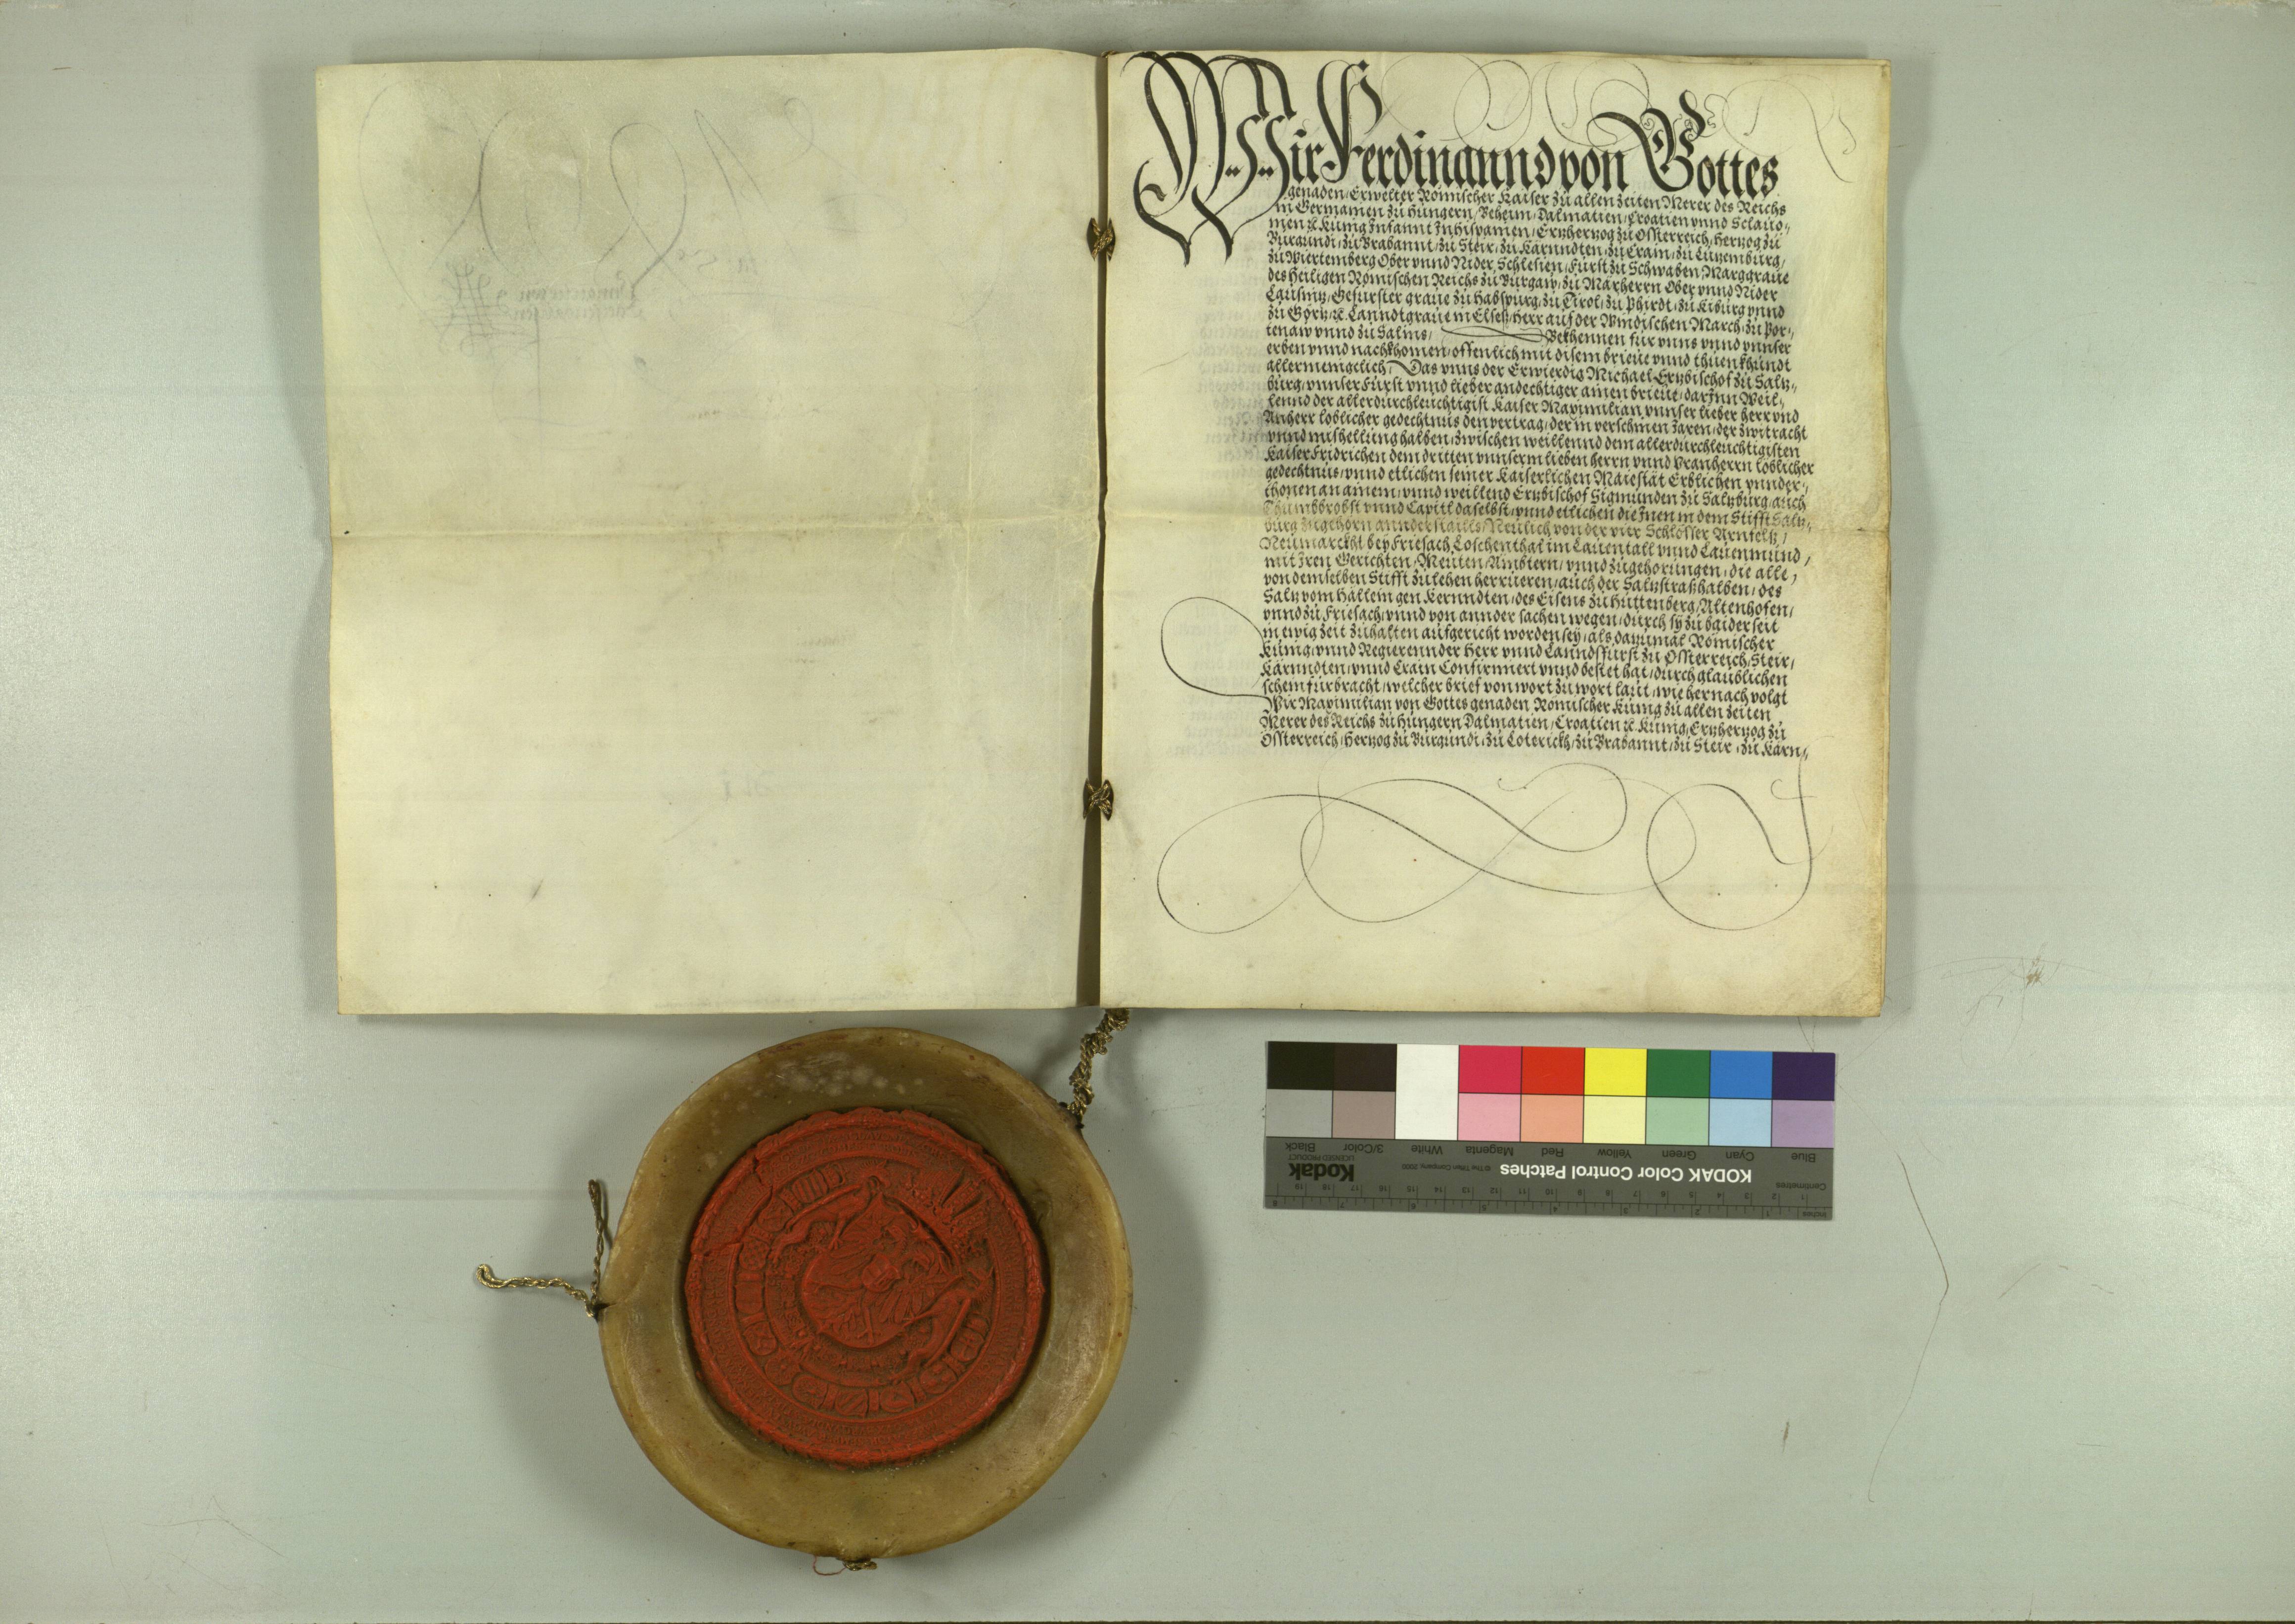 Wir Ferdinannd von Gottes
genaden, Erwelter Römischer Kaiser zu allen zeiten Merer des Reichs
in Germanien zu Hungern, Beheim, Dalmatien, Croatien vnnd Sclauo,,
nien &c. Kunig Infannt In Hispanien, Ertzhertzog zu Ossterreich, Hertzog zu
Burgundi, zu Brabannt, zu Steir, zu Kärnndten, zu Crain, zu Lutzemburg,
zu Wiertemberg Ober vnnd Nider Schlesien, Fürst zu Schwaben, Marggraue
des Heiligen Römischen Reichs zu Burgaw, zu Märherrn Ober vnnd Nider
Lausnitz, Gefurster graue zu Habspurg, zu Tirol, zu Phirdt, zu Kiburg vnnd
zu Görtz &c. Lanndtgraue in Elsess, Herr auf der Windischen March, zu Por,,
tenaw vnnd zu Salins, Bekhennen für vnns vnnd vnnser
erben vnnd nachkhomen, offenlich mit disem brieue vnnd thuen khundt
allermenigclich, Das vnns der Erwierdig Michael Ertzbischof zu Saltz,,
burg, vnnser Fürst vnnd lieber andechtiger ainen brieue, darInn Weil,,
lennd der allerdurchleuchtigist Kaiser Maximilian vnnser lieber herr vnd
Anherr loblicher gedechtnus den vertrag, der in verschinen Jaren, der zwitracht
vnnd mishellung halben, zwischen weillennd dem allerdurchleuchtigisten
Kaiser Fridrichen dem dritten vnnserm lieben herrn vnnd Vranherrn loblicher
gedechtnus, vnnd etlichen seiner Kaiserlichen Maiestät Erblichen vnnder,,
thonen an ainem, vnnd weillend Ertzbischof Sigmunden zu Saltzburg, auch
Thumbbrobst vnnd Capitl daselbst, vnnd etlichen die Jnen in dem Stifft Saltz,,
burg zugehorn annderstaills, Neulich von der vier Schlösser Arnfeltz,
Neumarckht bey Friesach, Loschenthal im Lauentall vnnd Lauenmünd,
mit Jren Gerichten, Meuten, Ambtern, vnnd zugehörungen, die alle,
von demselben Stifft zu lehen herrueren, auch der Saltzstraß halben, des
Saltz vom Hällein gen Kernndten, des Eisens zu Huttenberg, Altenhofen,
vnnd zu Friesach, vnnd von annder sachen wegen, durch sy zu baiderseit
in ewig zeit zuhalten aufgericht worden sey, als dazumal Römischer
Kunig, vnnd Regierennder Herr vnnd Lanndsfürst zu Ossterreich, Steir,
Kärnndten, vnnd Crain Confirmiert vnnd bestet hat, durch glaublichen
schein fürbracht, welcher brief von wort zu wort laut, wie hernach volgt
Wir Maximilian von Gottes genaden Römischer Kunig zu allen zeiten
Merer des Reichs zu Hungern Dalmatien, Croatien &c. Kunig, Ertzhertzog zu
Ossterreich, Hertzog zu Burgundi, zu Loterickh, zu Brabannt, zu Steir, zu Kärn,,
KODAK Color Control Patches
Kodak
LICENSED PRODUCT
© The Tiffen Company, 2000
Blue Cyan Green Yellow Red Magenta White 3/Color Black
Centimetres
Inches